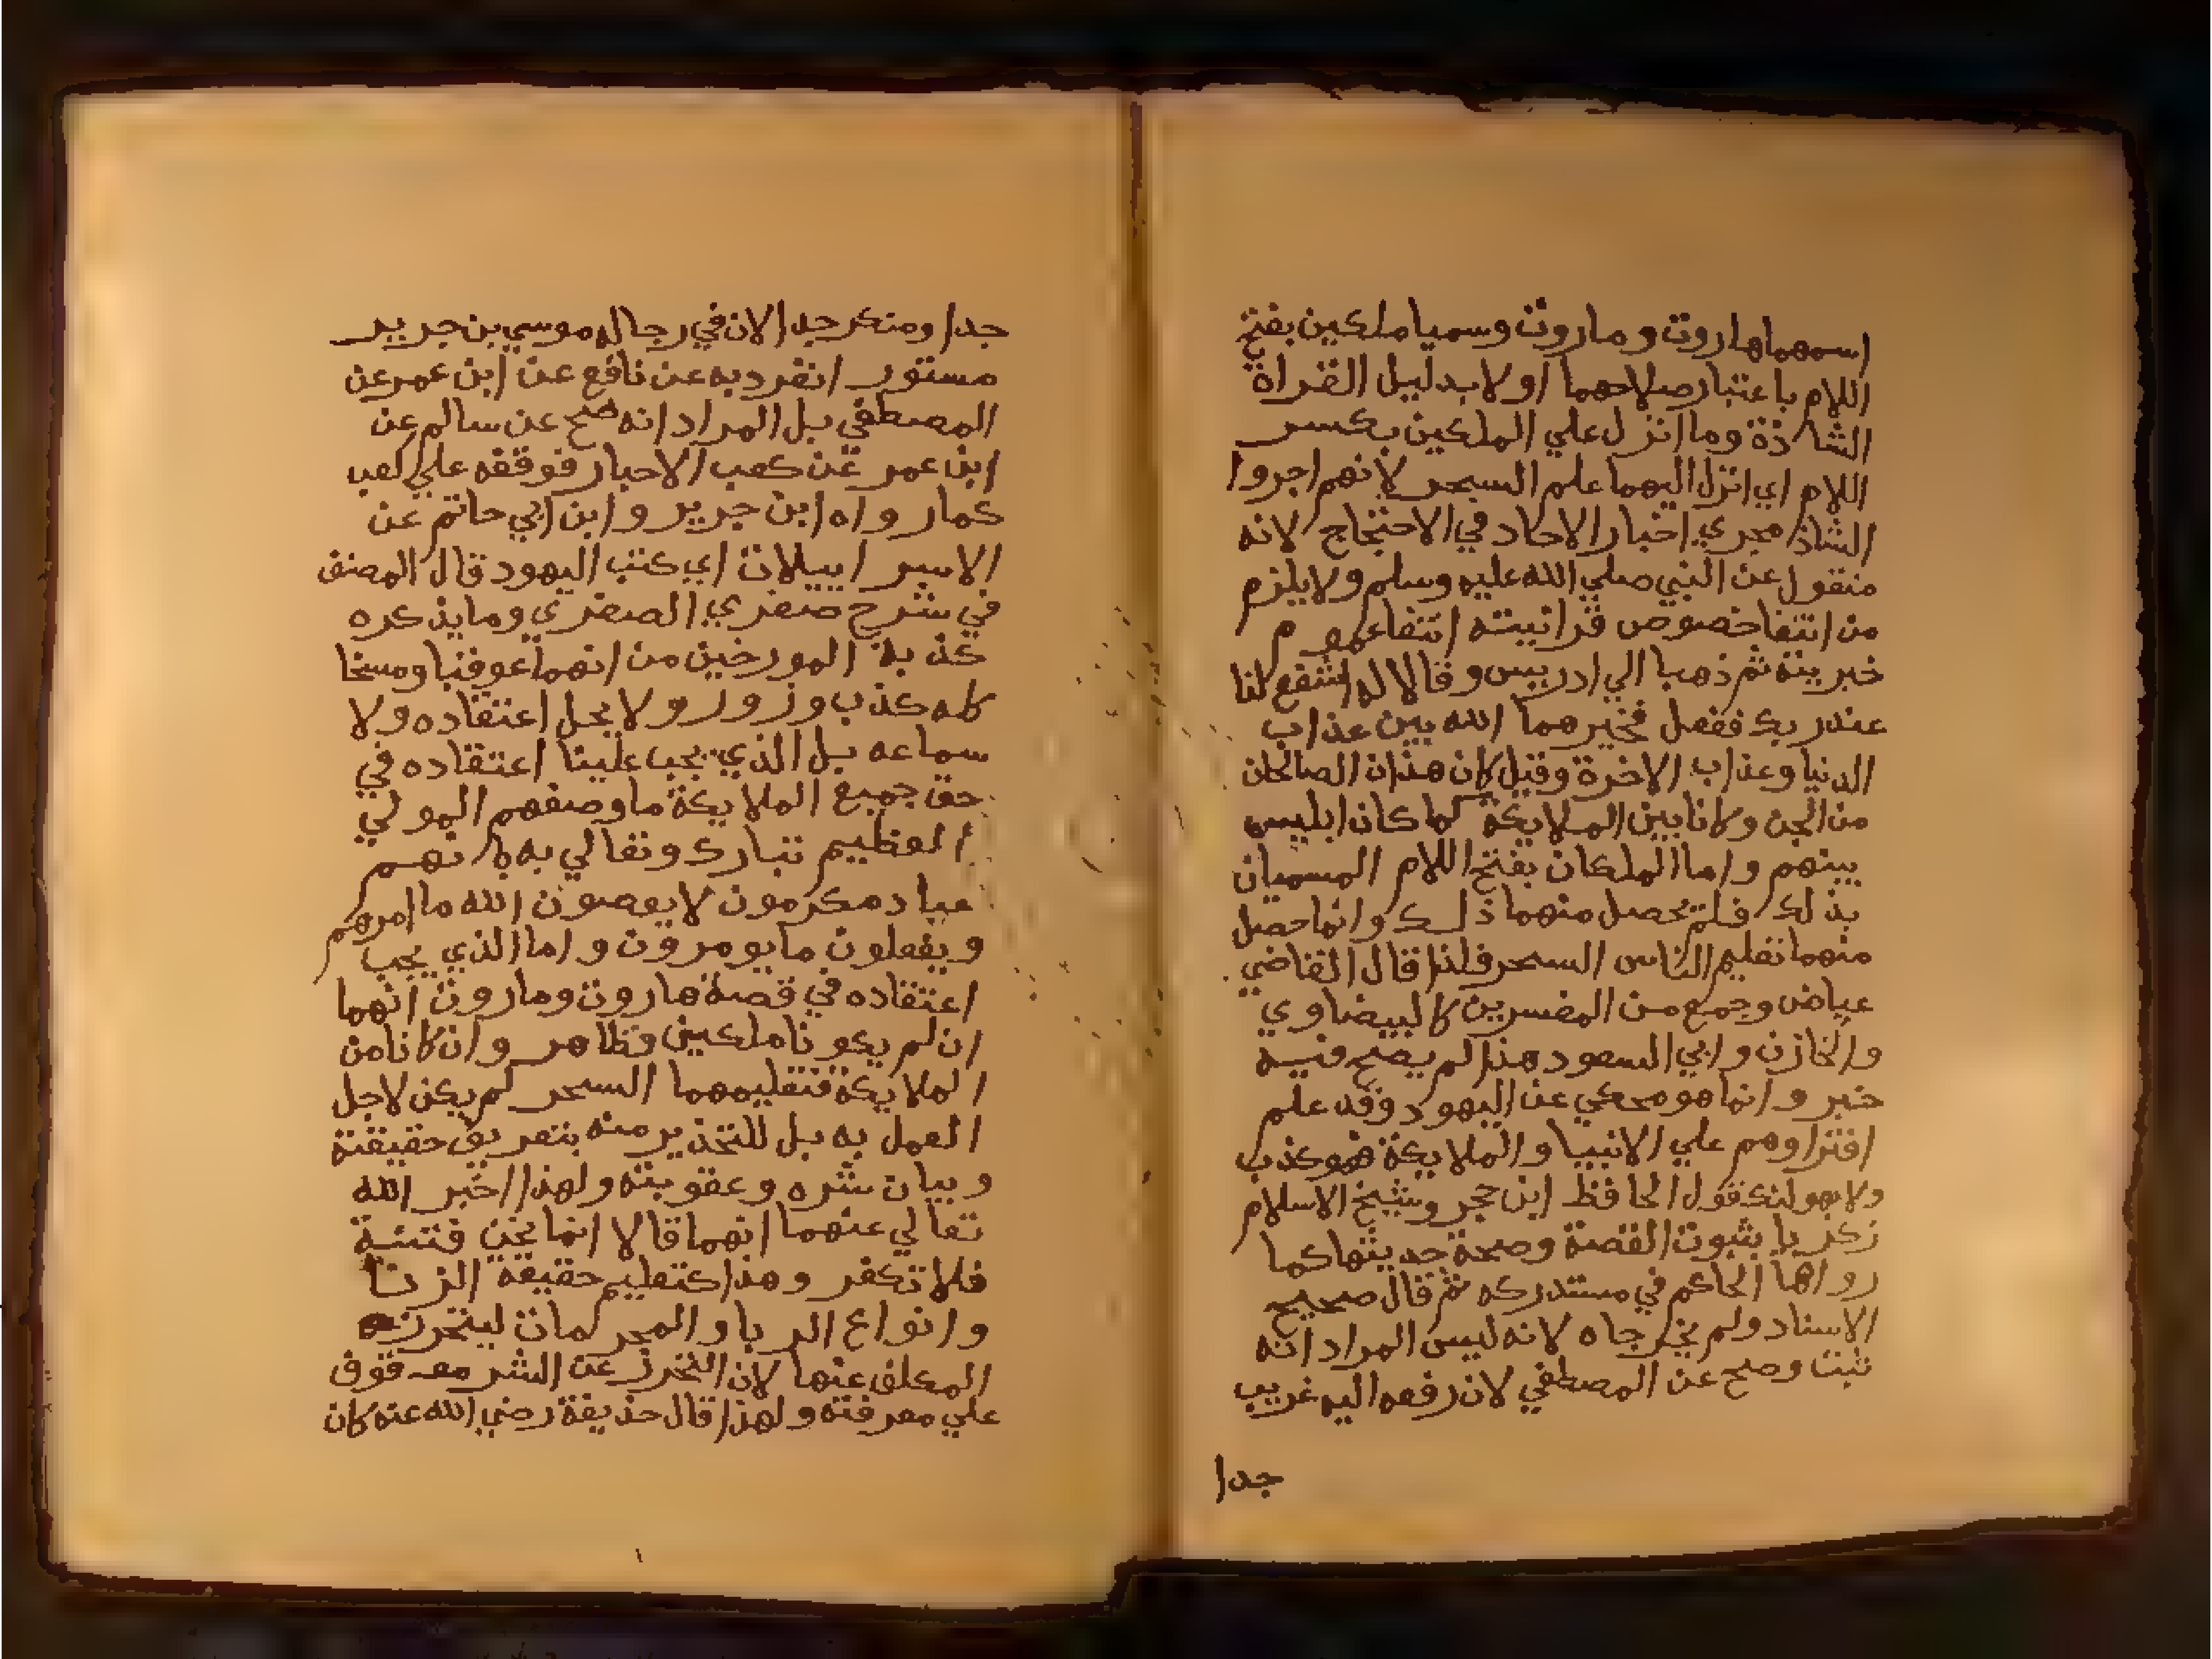 اسمهما هاروت وماروت وسميا ملكين بفتح
اللام باعتبار صلاحهما اولا بدليل القراة
الشاذة وما انزل علي الملكين بكسر
اللام اي انزل اليهما علم السحر لانهم اجروا
الشاذ مجري اخبار الاحاد في الاحتجاج لانه
منقول عن النبي صلي الله عليه وسلم ولا يلزم
من انتفا خصوص قرانيته انتفا عموم
خبريته ثم ذهبا الي ادريس وقالا له اشفع لنا
عند ربك ففعل فخيرهما الله بين عذاب
الدنيا وعذاب الاخرة وقيل كان هذان الصالحان
من الجن وكانا بين الملايكة كما كان ابليس
بينهم واما الملكان بفتح اللام المسميان
بذلك فلم يحصل منهما ذلك وانما حصل
منهما تعليم الناس السحر فلذا قال القاضي
عياض وجمع من المفسرين كالبيضاوي
والخازن وابي السعود هذا لم يصح فيه
خبر وانما هو محكي عن اليهود وقد علم
افتراوهم علي الانبيا والملايكة فهو كذب
ولا يهولنك قول الحافظ ابن حجر وشيخ الاسلام
زكريا بثبوت القصة وصحة حديثها كما
رواها الحاكم في مستدركه ثم قال صحيح
الاسناد ولم يخرجاه لانه ليس المراد انه
ثبت وصح عن المصطفي لان رفعه اليه غريب
جدا
جدا ومنكر جدا لان في رجاله موسي بن جرير
مستور انفرد به عن نافع عن ابن عمر عن
المصطفي بل المراد انه صح عن سالم عن
ابن عمر عن كعب الاحبار فوقفه علي كعب
كما رواه ابن جرير وابن ابي حاتم عن
الاسر اييلات اي كتب اليهود قال المصنف
في شرح صغري الصغري وما يذكره
كذبة المورخين من انهما عوقبا ومسخا
كله كذب وزور ولا يحل اعتقاده ولا
سماعه بل الذي يجب علينا اعتقاده في
حق جميع الملايكة ما وصفهم المولي
العظيم تبارك وتعالي به بانهم
عباد مكرمون لا يعصون الله ما امرهم
ويفعلون ما يومرون واما الذي يجب
اعتقاده في قصة هاروت وماروت انهما
ان لم يكونا ملكين فظاهر وان كانا من
الملايكة فتعليمهما السحر لم يكن لاجل
العمل به بل للتحذير منه بتعريف حقيقته
وبيان شره وعقوبته ولهذا اخبر الله
تعالي عنهما انهما قالا انما نحن فتنة
فلا تكفر وهذا كتعليم حقيقة الزنا
وانواع الربا والمحرمات ليتحرز
المكلف عنها لان التحرز عن الشر موقوف
علي معرفته ولهذا قال حذيفة رضي الله عنه كان